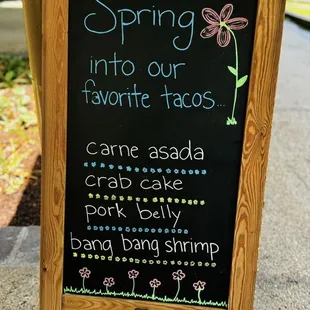 Spring
into our
favorite tacos...
carne asada
crab cake
pork belly
bang bang shrimp